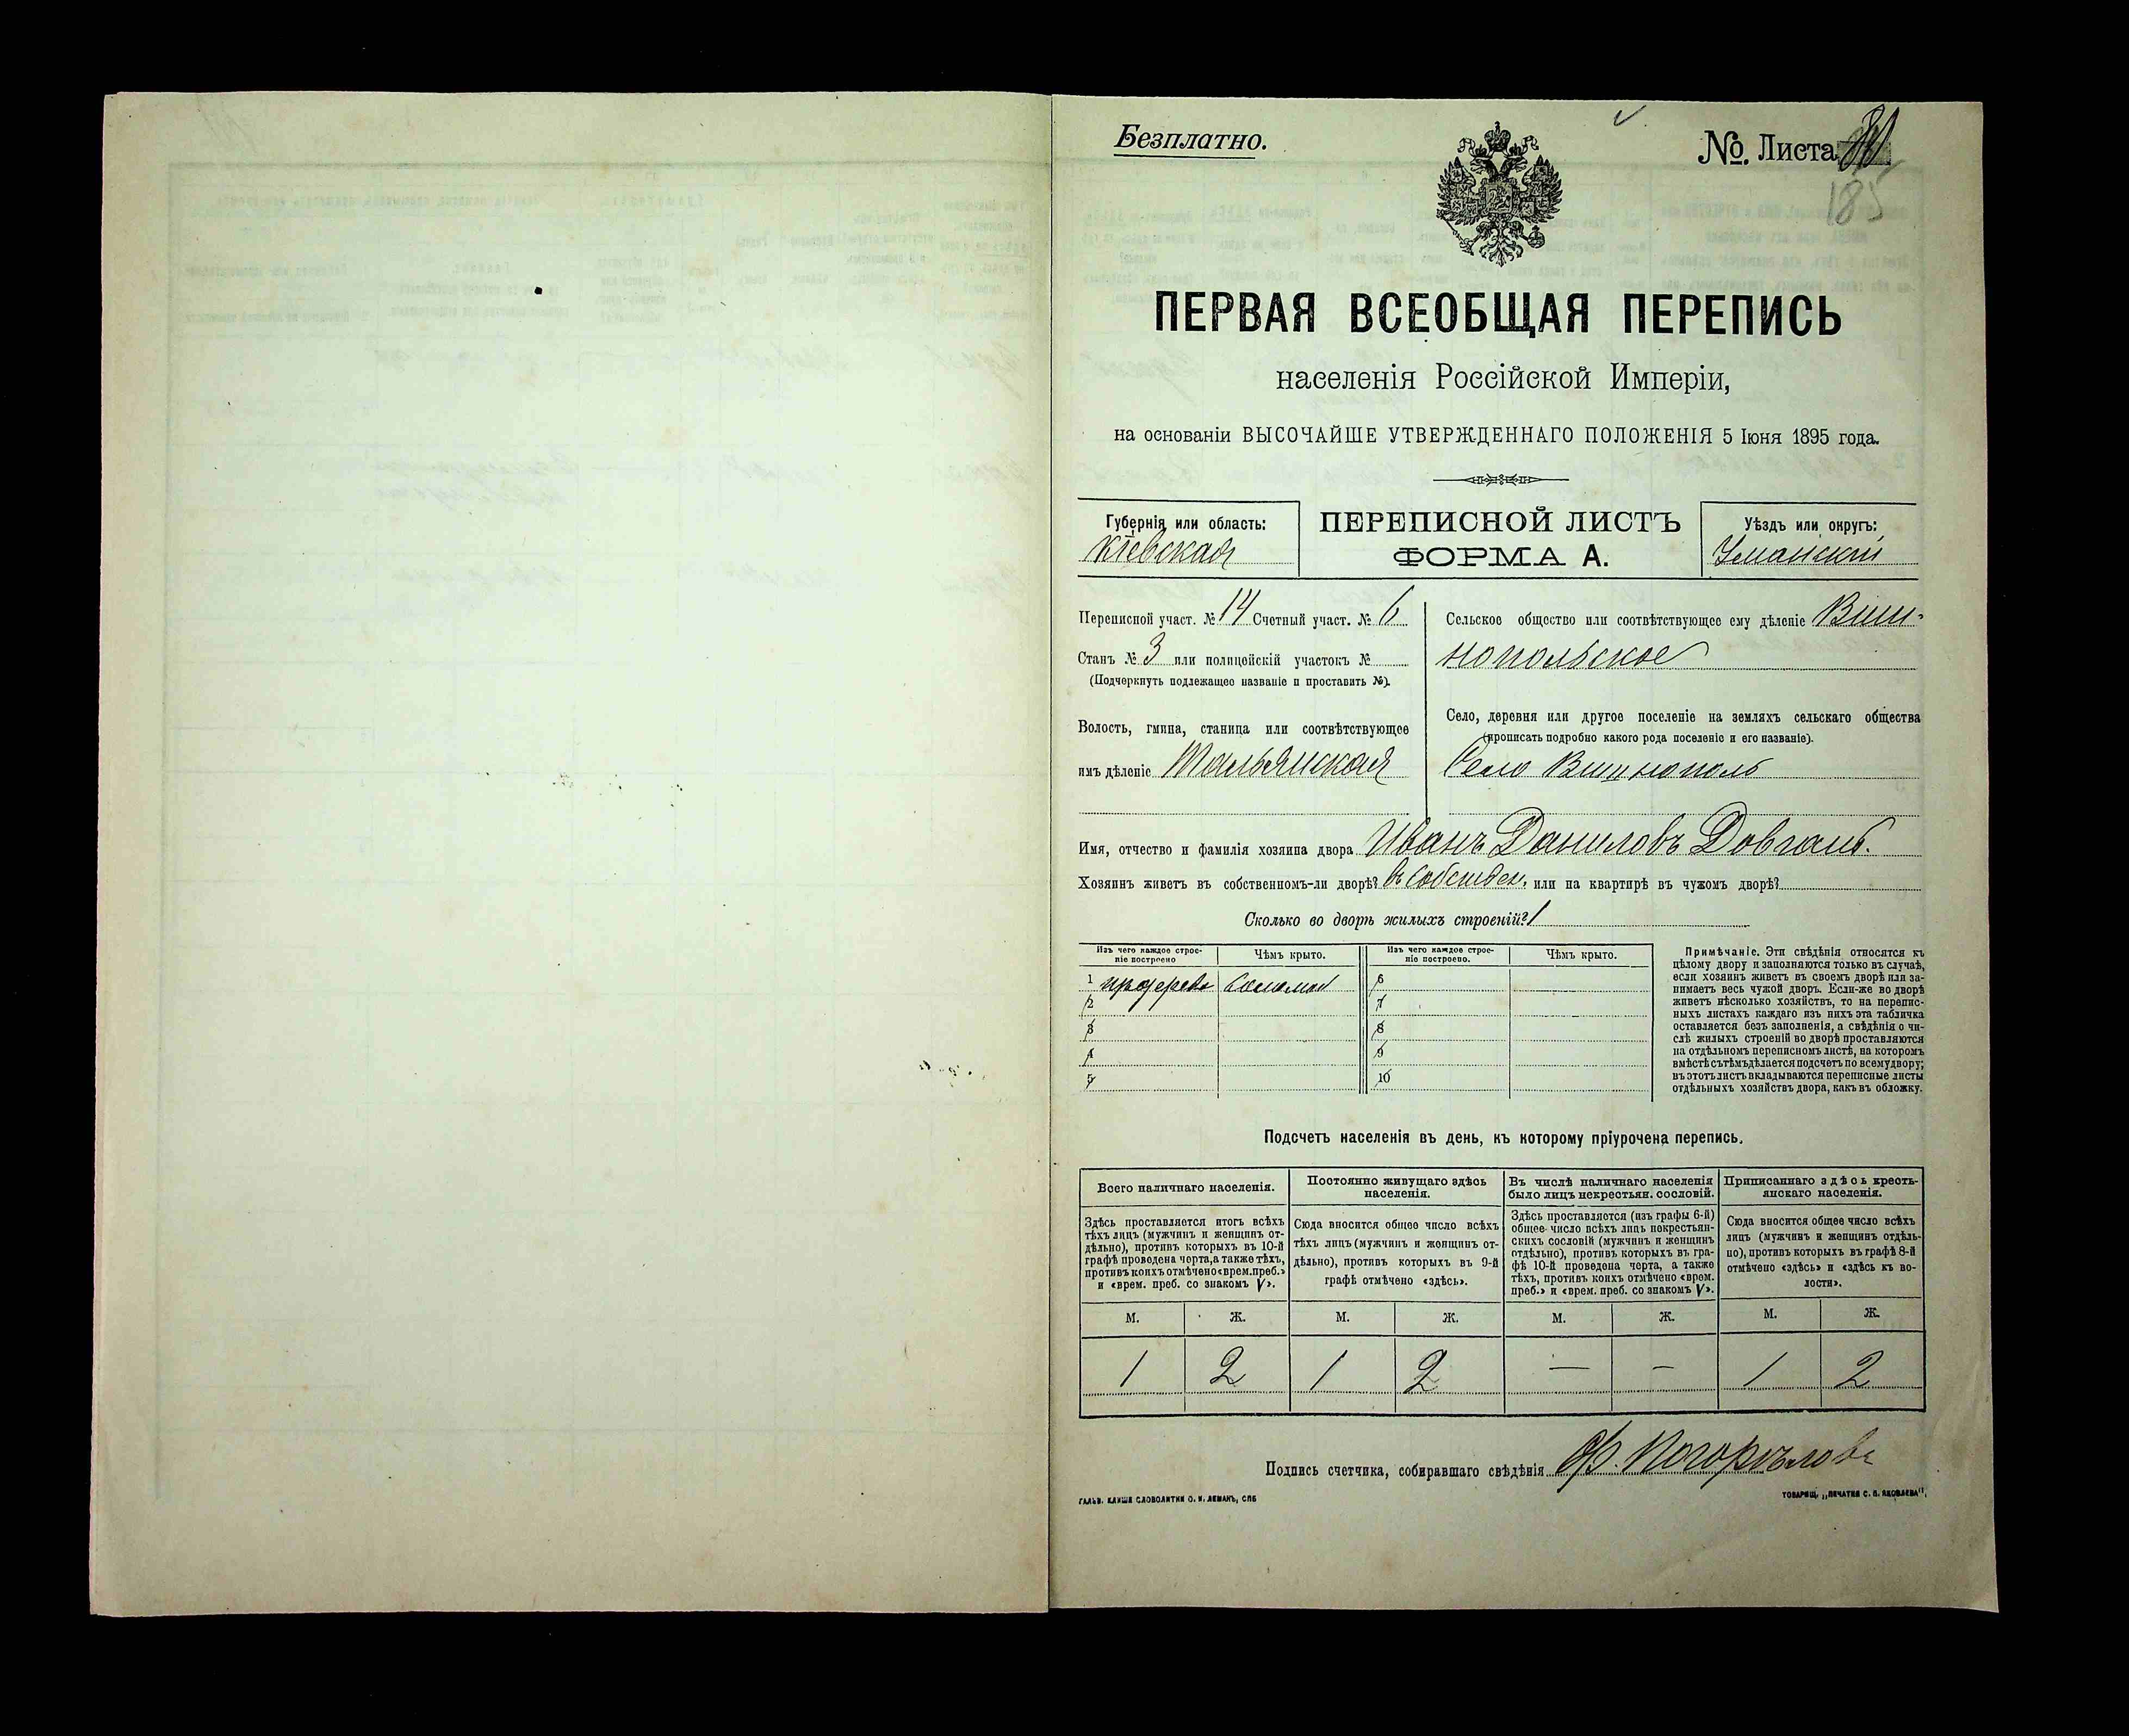 Безплатно.
№. Листа
185
ПЕРВАЯ ВСЕОБЩАЯ ПЕРЕПИСЬ
населенія Россійской Имперіи,
на основаніи ВЫСОЧАЙШЕ УТВЕРЖДЕННАГО ПОЛОЖЕНІЯ 5 Іюня 1895 года.
Губернія или область:
Кіевская
ПЕРЕПИСНОЙ ЛИСТЪ
ФОРМА А.
Уѣздъ или округъ:
Уманскій
Переписной участ. № 14 Счетный участ. № 6
Станъ № 3 или полицейскій участокъ №
(Подчеркнуть подлежащее названіе и проставить №).
Волость, гмина, станица или соотвѣтствующее
имъ дѣленіе Тальянская
Сельское общество или соотвѣтствующее ему дѣленіе Виш-
нопольское
Село, деревня или другое поселеніе на земляхъ сельскаго общества
(прописать подробно какого рода поселеніе и его названіе).
Село Вишнополь
Имя, отчество и фамилія хозяина двора Иванъ Даниловъ Довгань.
Хозяинъ живетъ въ собственномъ-ли дворѣ? въ собствен. или на квартирѣ въ чужомъ дворѣ?
Сколько во дворѣ жилыхъ строеній? 1
Изъ чего каждое строе-
ніе построено
Чѣмъ крыто.
Изъ чего каждое строе-
ніе построено.
Чѣмъ крыто.
1 изъ дерева соломой
2
3
4
5
6
7
8
9
10
Примѣчаніе. Эти свѣдѣнія относятся къ
цѣлому двору и заполняются только въ случаѣ,
если хозяинъ живетъ въ своемъ дворѣ или за-
нимаетъ весь чужой дворъ. Если-же во дворѣ
живетъ нѣсколько хозяйствъ, то на перепис-
ныхъ листахъ каждаго изъ нихъ эта табличка
оставляется безъ заполненія, а свѣдѣнія о чи-
слѣ жилыхъ строеній во дворѣ проставляются
на отдѣльномъ переписномъ листѣ, на которомъ
вмѣстѣ съ тѣмъ дѣлается подсчетъ по всему двору;
въ этотъ листъ вкладываются переписные листы
отдѣльныхъ хозяйствъ двора, какъ въ обложку.
Подсчетъ населенія въ день, къ которому пріурочена перепись.
Всего наличнаго населенія.
Здѣсь проставляется итогъ всѣхъ
тѣхъ лицъ (мужчинъ и женщинъ от-
дѣльно), противъ которыхъ въ 10-й
графѣ проведена черта, а также тѣхъ,
противъ коихъ отмѣчено «врем. преб.»
и «врем. преб. со знакомъ V».
Постоянно живущаго здѣсь
населенія.
Сюда вносится общее число всѣхъ
тѣхъ лицъ (мужчинъ и женщинъ от-
дѣльно), противъ которыхъ въ 9-й
графѣ отмѣчено «здѣсь».
Въ числѣ наличнаго населенія
было лицъ некрестьян. сословій.
Здѣсь проставляется (изъ графы 6-й)
общее число всѣхъ лицъ некрестьян-
скихъ сословій (мужчинъ и женщинъ
отдѣльно), противъ которыхъ въ гра-
фѣ 10-й проведена черта, а также
тѣхъ, противъ коихъ отмѣчено «врем.
преб.» и «врем. преб. со знакомъ V».
Приписаннаго здѣсь кресть-
янскаго населенія.
Сюда вносится общее число всѣхъ
лицъ (мужчинъ и женщинъ отдѣль-
но), противъ которыхъ въ графѣ 8-й
отмѣчено «здѣсь» и «здѣсь къ во-
лости».
М. Ж. М. Ж. М. Ж. М. Ж.
1 2 1 2 — — 1 2
Подпись счетчика, собиравшаго свѣдѣнія Ф. Погорѣловъ
ГАЛЬВ. КЛИШЕ СЛОВОЛИТНИ О. И. ЛЕМАНЪ, СПБ
ТОВАРИЩ. „ПЕЧАТНЯ С. П. ЯКОВЛЕВА".